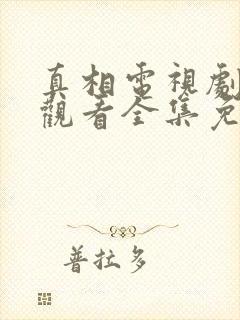 真相電視劇
觀看全集免
普拉多